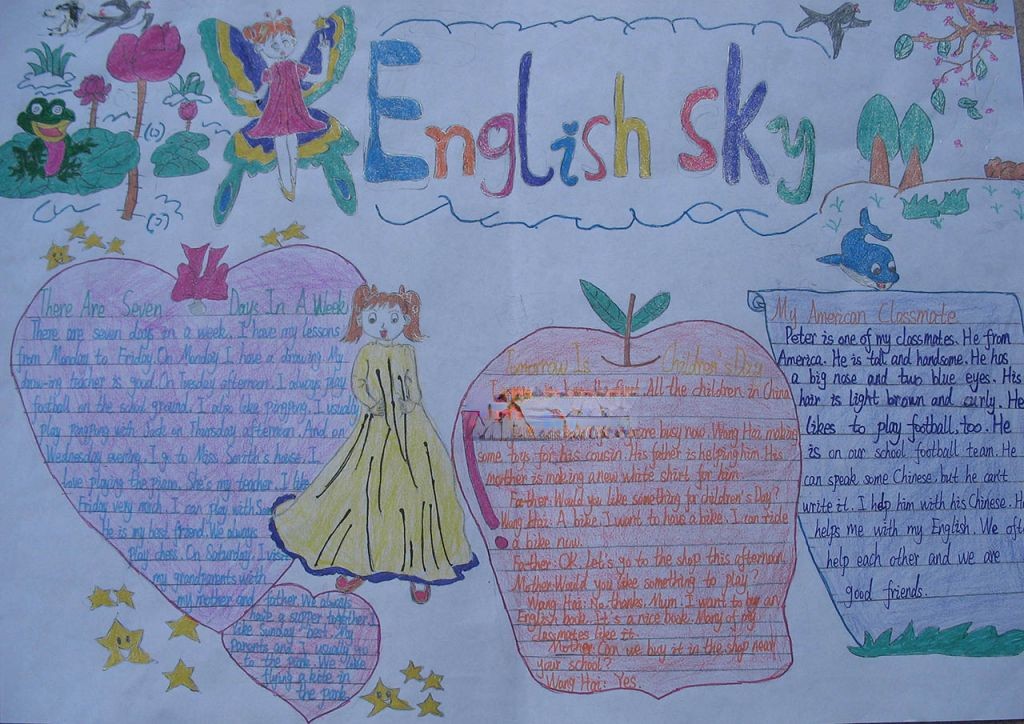 English sky
There Are Seven Days In A Week
There are seven days in a week. I have my lessons
from Monday to Friday. On Monday I have a drawing. My
draw-ing teacher is good. On Tuesday afternoon. I always play
football on the school ground. I also like pingpong. I usually
play pingpong with Jack on Thursday afternoon. And on
Wednesday evening. I go to Miss Smith's house. I
love playing the piano. She's my teacher. I like
Friday very much. I can play with
He is my best friend. We always
play chess. On Saturday. I visit
my grandparents with
my mother and father. We always
have a supper together. I
like Sunday best. My
Parents and I usually go
to the park. We like
flying a kite in
the park.
Tomorrow Is Children's Day
All the children in China
are busy now. Wang Hai making
some toys for his cousin. His father is helping him. His
mother is making a new white shirt for him.
Father: Would you like something for children's Day?
Wang Hai: A bike. I want to have a bike. I can ride
a bike now.
Father: OK. Let's go to the shop this afternoon.
Mother: Would you like something to play?
Wang Hai: No. thanks. Mum. I want to buy an
English book. It is a nice book. Many of my
classmates like it.
Mother: Can we buy it in the shop near
your school?
Wang Hai: Yes.
My American Classmate
Peter is one of my classmates. He from
America. He is tall and handsome. He has
a big nose and two blue eyes. His
hair is light brown and curly. He
likes to play football. too. He
is on our school football team. He
can speak some Chinese. but he can't
write it. I help him with his Chinese. He
helps me with my English. We oft
help each other and we are
good friends.